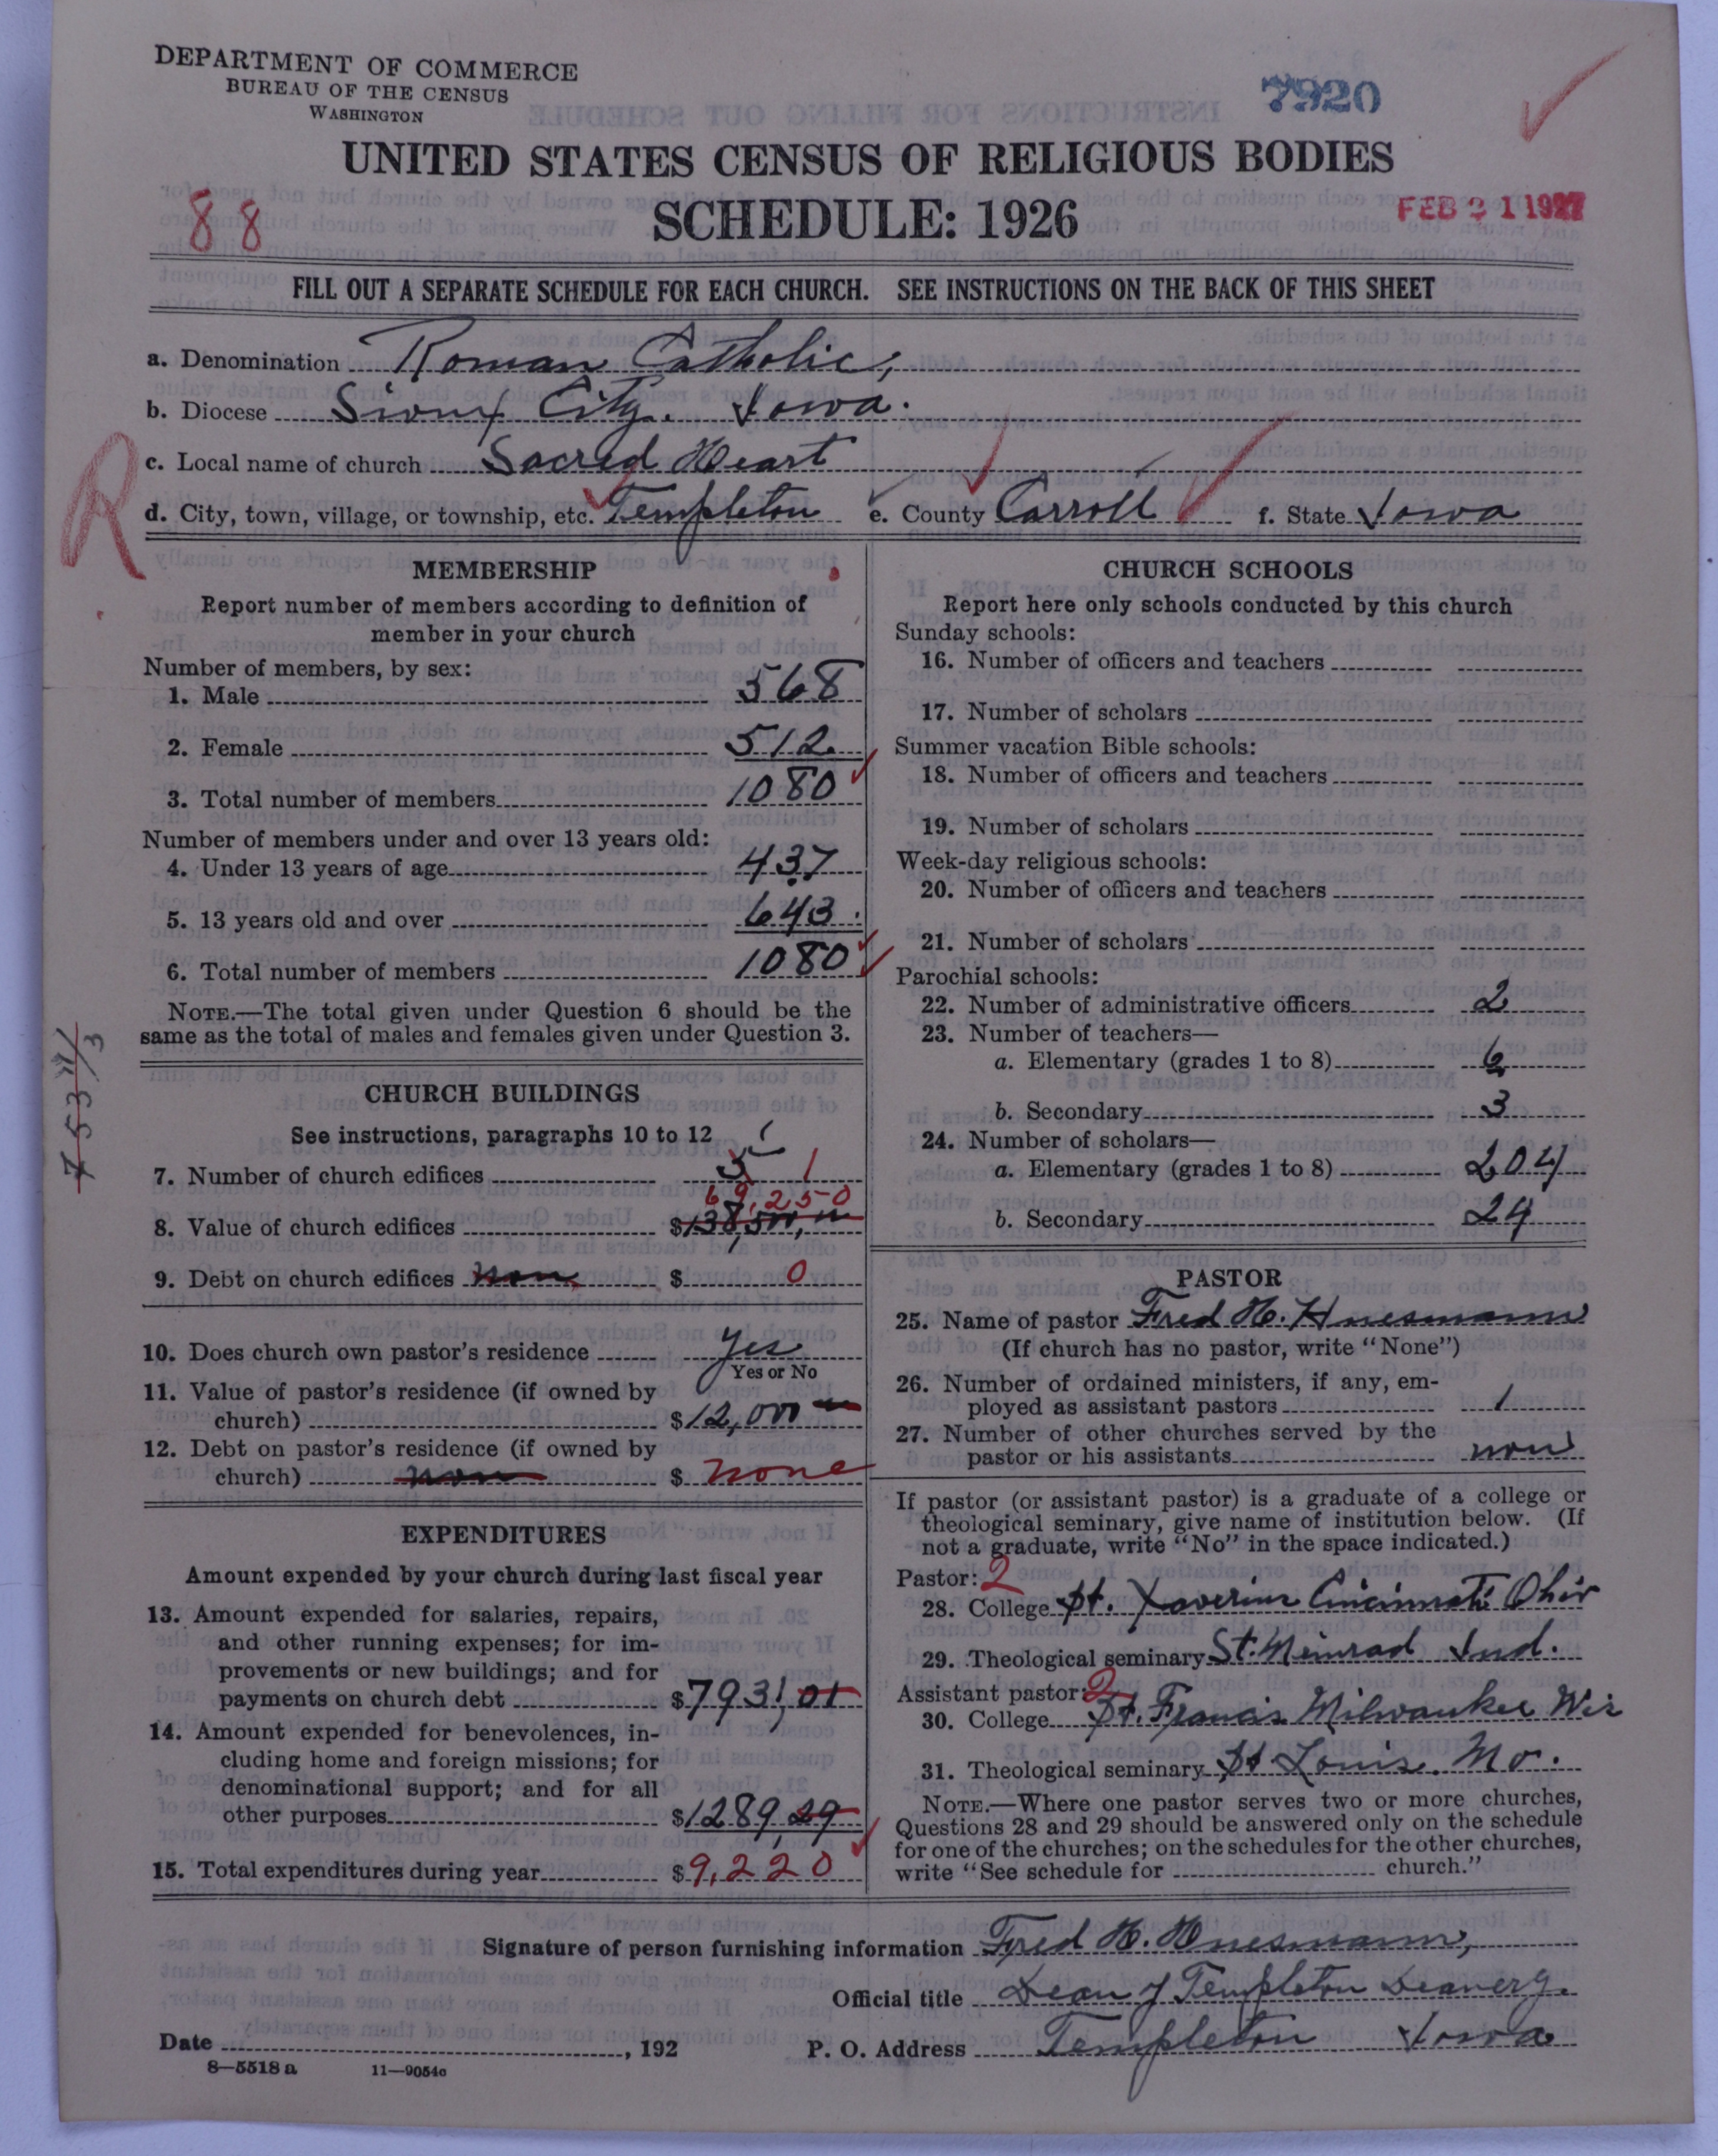 DEPARTMENT OF COMMERCE
BUREAU OF THE CENSUS
WASHINGTON
7920
UNITED STATES CENSUS OF RELIGIOUS BODIES
88
SCHEDULE: 1926
FEB 21 1927
FILL OUT A SEPARATE SCHEDULE FOR EACH CHURCH. SEE INSTRUCTIONS ON THE BACK OF THIS SHEET
a. Denomination Roman Catholic,
b. Diocese Sioux City. Iowa.
R
c. Local name of church Sacred Heart
d. City, town, village, or township, etc. Templeton e. County Carroll f. State Iowa
MEMBERSHIP
Report number of members according to definition of
member in your church
Number of members, by sex:
1. Male 568
2. Female 512
3. Total number of members 1080
Number of members under and over 13 years old:
4. Under 13 years of age 437
5. 13 years old and over 643
6. Total number of members 1080
NOTE.—The total given under Question 6 should be the
same as the total of males and females given under Question 3.
CHURCH BUILDINGS
See instructions, paragraphs 10 to 12
7. Number of church edifices 5 1
69,250
8. Value of church edifices $138,500,
9. Debt on church edifices $ 0
10. Does church own pastor's residence yes
Yes or No
11. Value of pastor's residence (if owned by
church) $12,000
12. Debt on pastor's residence (if owned by
church) $ none
EXPENDITURES
Amount expended by your church during last fiscal year
13. Amount expended for salaries, repairs,
and other running expenses; for im-
provements or new buildings; and for
payments on church debt $7931,01
14. Amount expended for benevolences, in-
cluding home and foreign missions; for
denominational support; and for all
other purposes $1289,29
15. Total expenditures during year $9,220
CHURCH SCHOOLS
Report here only schools conducted by this church
Sunday schools:
16. Number of officers and teachers
17. Number of scholars
Summer vacation Bible schools:
18. Number of officers and teachers
19. Number of scholars
Week-day religious schools:
20. Number of officers and teachers
21. Number of scholars
Parochial schools:
22. Number of administrative officers 2
23. Number of teachers—
a. Elementary (grades 1 to 8) 6
b. Secondary 3
24. Number of scholars—
a. Elementary (grades 1 to 8) 204
b. Secondary 24
PASTOR
25. Name of pastor Fred H. Huesmann
(If church has no pastor, write "None")
26. Number of ordained ministers, if any, em-
ployed as assistant pastors 1
27. Number of other churches served by the
pastor or his assistants non
If pastor (or assistant pastor) is a graduate of a college or
theological seminary, give name of institution below. (If
not a graduate, write "No" in the space indicated.)
Pastor: 2
28. College St. Xaverius Cincinnati Ohio
29. Theological seminary St. Meinrad Ind.
Assistant pastor: 2
30. College St. Francis Milwaukee Wis
31. Theological seminary St Louis. Mo.
NOTE.—Where one pastor serves two or more churches,
Questions 28 and 29 should be answered only on the schedule
for one of the churches; on the schedules for the other churches,
write "See schedule for church."
Signature of person furnishing information Fred H. Huesmann,
Official title Dean of Templeton Deanery.
Date , 192 P. O. Address Templeton Iowa
8—5518 a 11—9054c